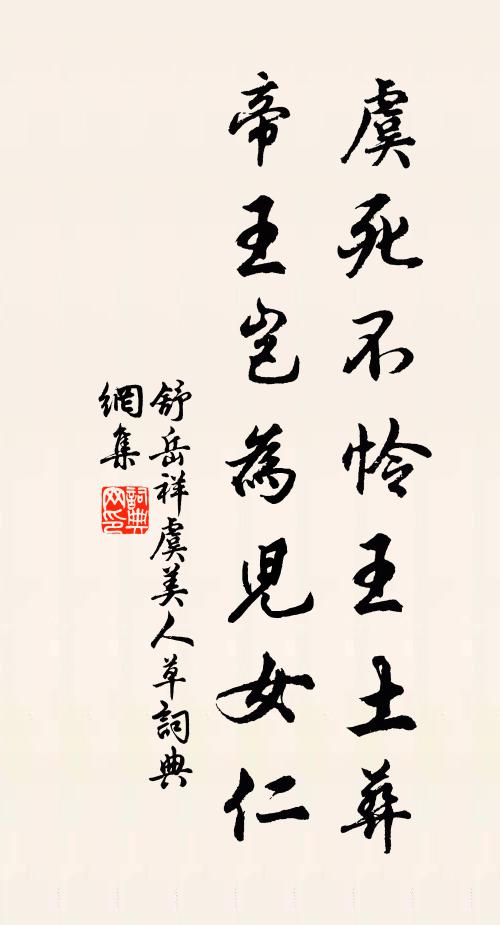 虞死不怜王土葬
帝王岂為児女仁
舒岳祥虞美人草詞典
網集
詞典
网印